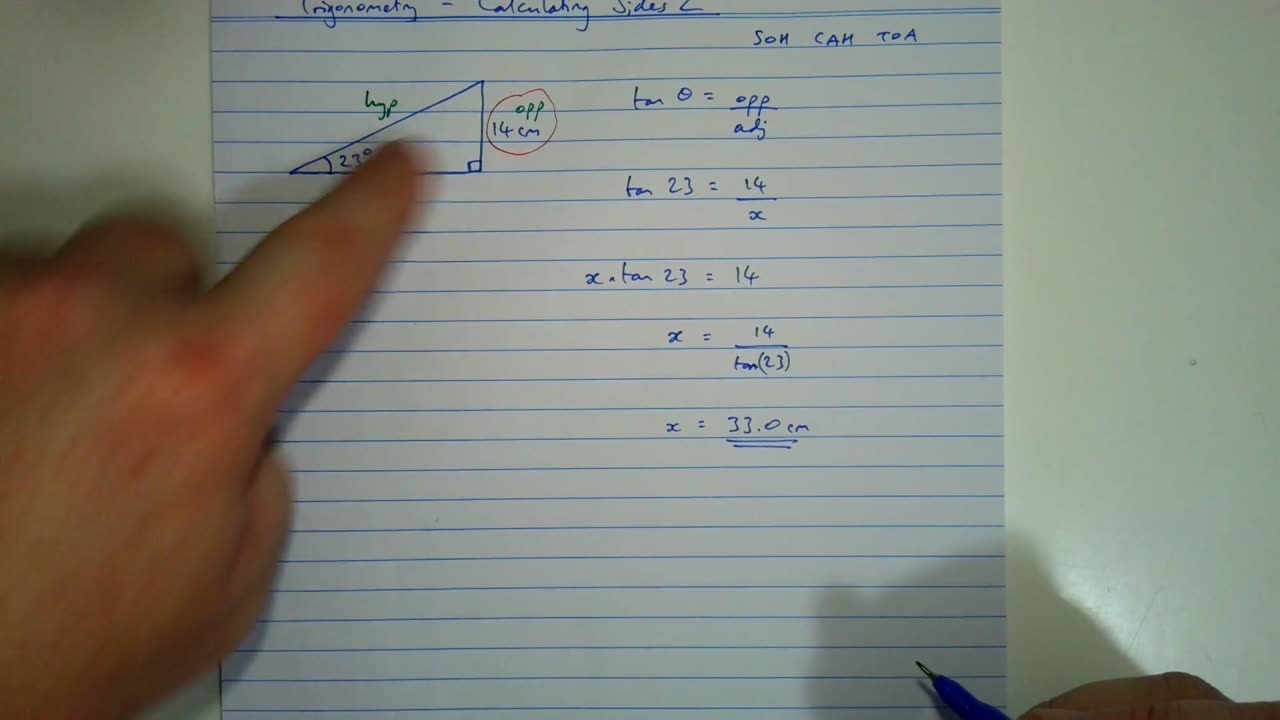 Trigonometry - Calculating Sides 2
SOH CAH TOA
hyp
opp
14 cm
23°
tan θ = opp
adj
tan 23 = 14
x
x.tan 23 = 14
x = 14
tan(23)
x = 33.0 cm